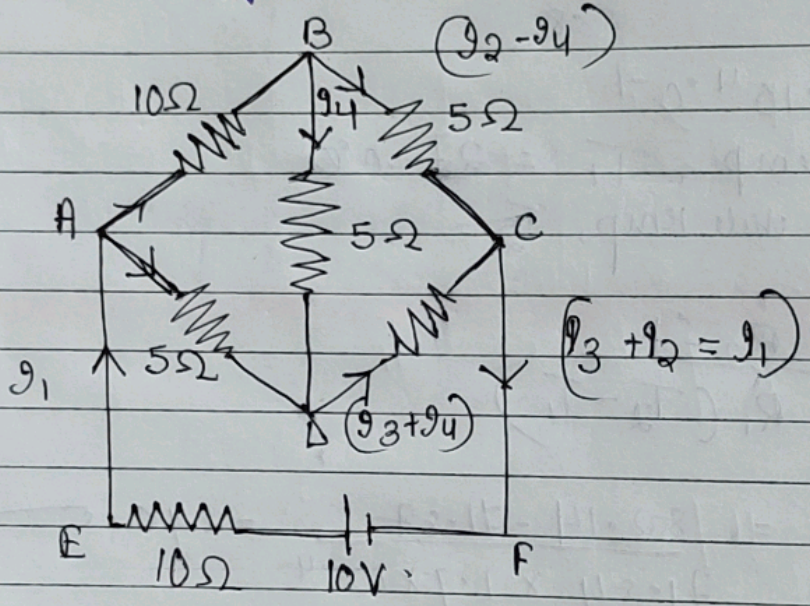 B
(I2 - I4)
10Ω
I4
5Ω
A
5Ω
C
(I3 + I2 = I1)
I1
5Ω
D
(I3 + I4)
E
10Ω
10V
F